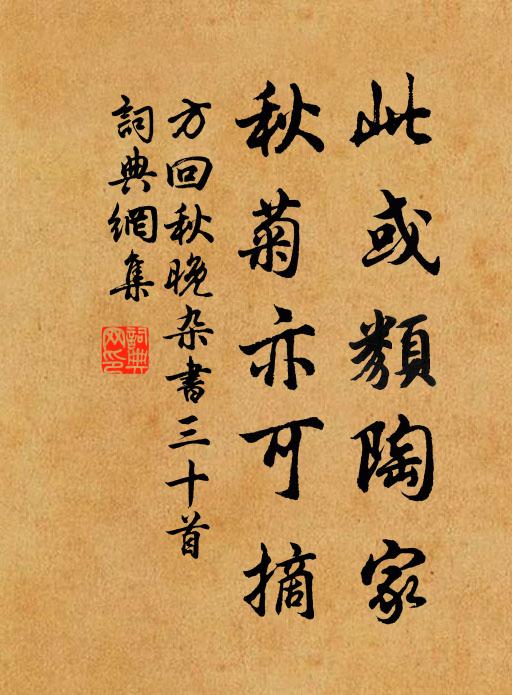 此或類陶家
秋菊亦可摘
方回秋晚杂書三十首
詞典網集
詞典網印